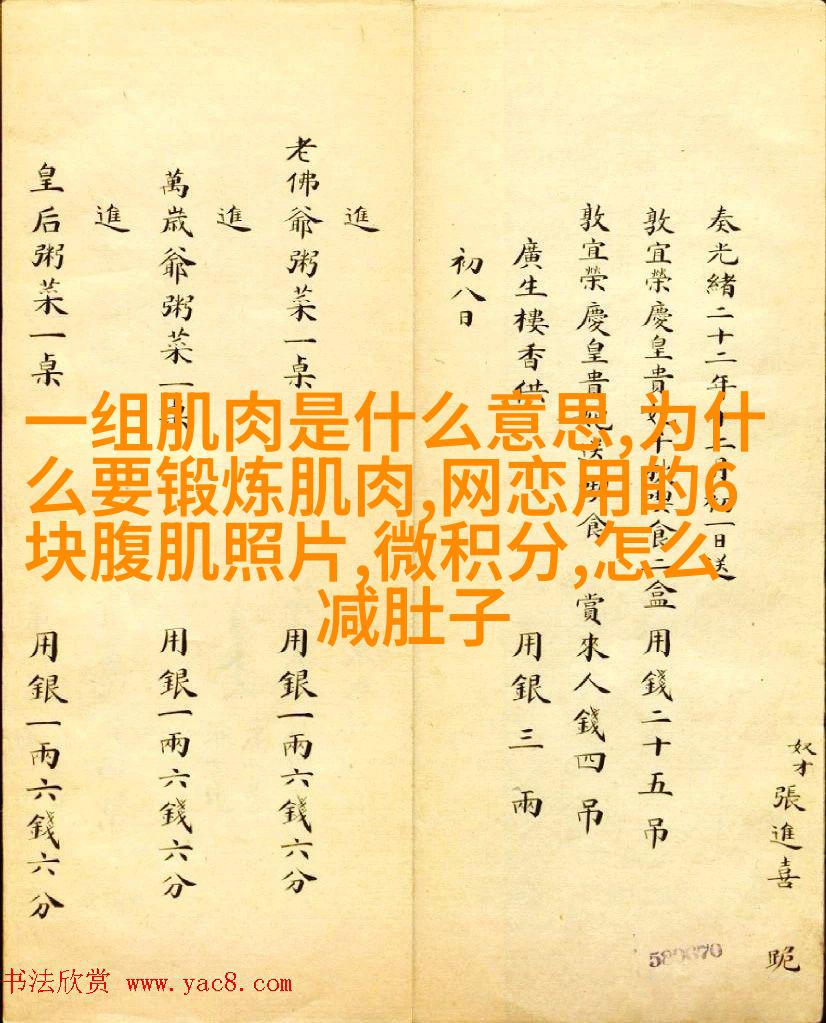 奏光緒二十二年十二月初一日送
敦宜榮慶皇貴妃十
食二盒 用錢二十五吊
敦宜榮慶皇貴妃送
食 賞來人錢四吊
廣生樓香供 用銀三兩
初八日
進
老佛爺粥菜一桌 用銀一兩六錢六分
進
萬歲爺粥菜一桌 用銀一兩六錢六分
進
皇后粥菜一桌 用銀一兩六錢六分
奴才張進喜 跪
一组肌肉是什么意思,为什
么要锻炼肌肉,网恋用的6
块腹肌照片,微积分,怎么
减肚子
书法欣赏 www.yac8.com